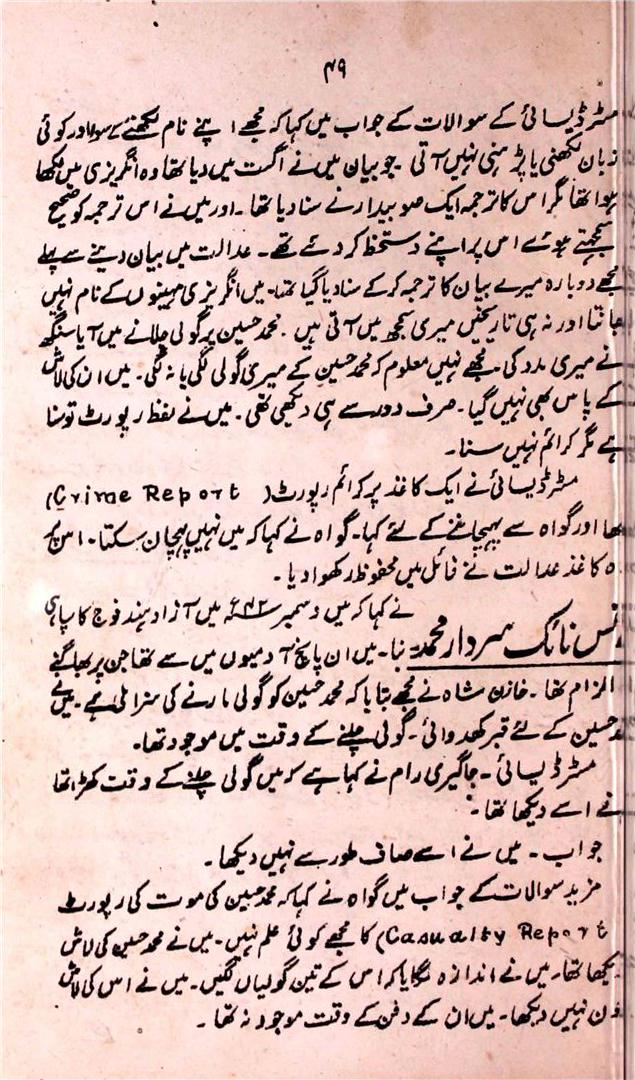 ۴۹
مسٹر ڈیسائی کے سوالات کے جواب میں کہا کہ مجھے اپنے نام لکھنے کے سوا اور کوئی
زبان لکھنی یا پڑھنی نہیں آتی ۔ جو بیان میں نے اگست میں دیا تھا وہ انگریزی میں لکھا
ہوا تھا مگر اس کا ترجمہ ایک صوبیدار نے سنا دیا تھا ۔ اور میں نے اس ترجمہ کو صحیح
سمجھتے ہوئے اس پر اپنے دستخط کر دئے تھے ۔ عدالت میں بیان دینے سے پہلے
مجھے دوبارہ میرے بیان کا ترجمہ کرکے سنا دیا گیا تھا ۔ میں انگریزی مہینوں کے نام نہیں
جانتا اور نہ ہی تاریخیں میری سمجھ میں آتی ہیں ۔ محمد حسین پر گولی چلانے میں آیا سنگھ
نے میری مدد کی ۔ مجھے نہیں معلوم کہ محمد حسین کے میری گولی لگی یا نہ لگی ۔ میں ان کی لاش
کے پاس بھی نہیں گیا ۔ صرف دور سے ہی دیکھی تھی ۔ میں نے لفظ رپورٹ تو سنا
ہے مگر کرائم نہیں سنا ۔
مسٹر ڈیسائی نے ایک کاغذ پر کرائم رپورٹ ( Crime Report )
لکھا اور گواہ سے پہچاننے کے لئے کہا ۔ گواہ نے کہا کہ میں نہیں پہچان سکتا ۔ اس پر
وہ کاغذ عدالت نے فائل میں محفوظ رکھوا دیا ۔
نے کہا کہ میں دسمبر ۱۹۴۲ء میں آزاد ہند فوج کا سپاہی
لانس نائک سردار محمد بنا ۔ میں ان پانچ آدمیوں میں سے تھا جن پر بھاگنے
الزام تھا ۔ خازن شاہ نے مجھے بتایا کہ محمد حسین کو گولی مارنے کی سزا ملی ہے ۔ میں نے
محمد حسین کے لئے قبر کھدوائی ۔ گولی چلنے کے وقت میں موجود تھا ۔
مسٹر ڈیسائی ۔ جاگیری رام نے کہا ہے کہ میں گولی چلنے کے وقت کھڑا تھا
نے اسے دیکھا تھا ۔
جواب ۔ میں نے اسے صاف طور سے نہیں دیکھا ۔
مزید سوالات کے جواب میں گواہ نے کہا کہ محمد حسین کی موت کی رپورٹ
( Casualty Report ) کا مجھے کوئی علم نہیں ۔ میں نے محمد حسین کی لاش
دیکھا تھا ۔ میں نے اندازہ لگایا کہ اس کے تین گولیاں لگیں ۔ میں نے اس کی لاش
دفن نہیں دیکھا ۔ میں ان کے دفن کے وقت موجود نہ تھا ۔